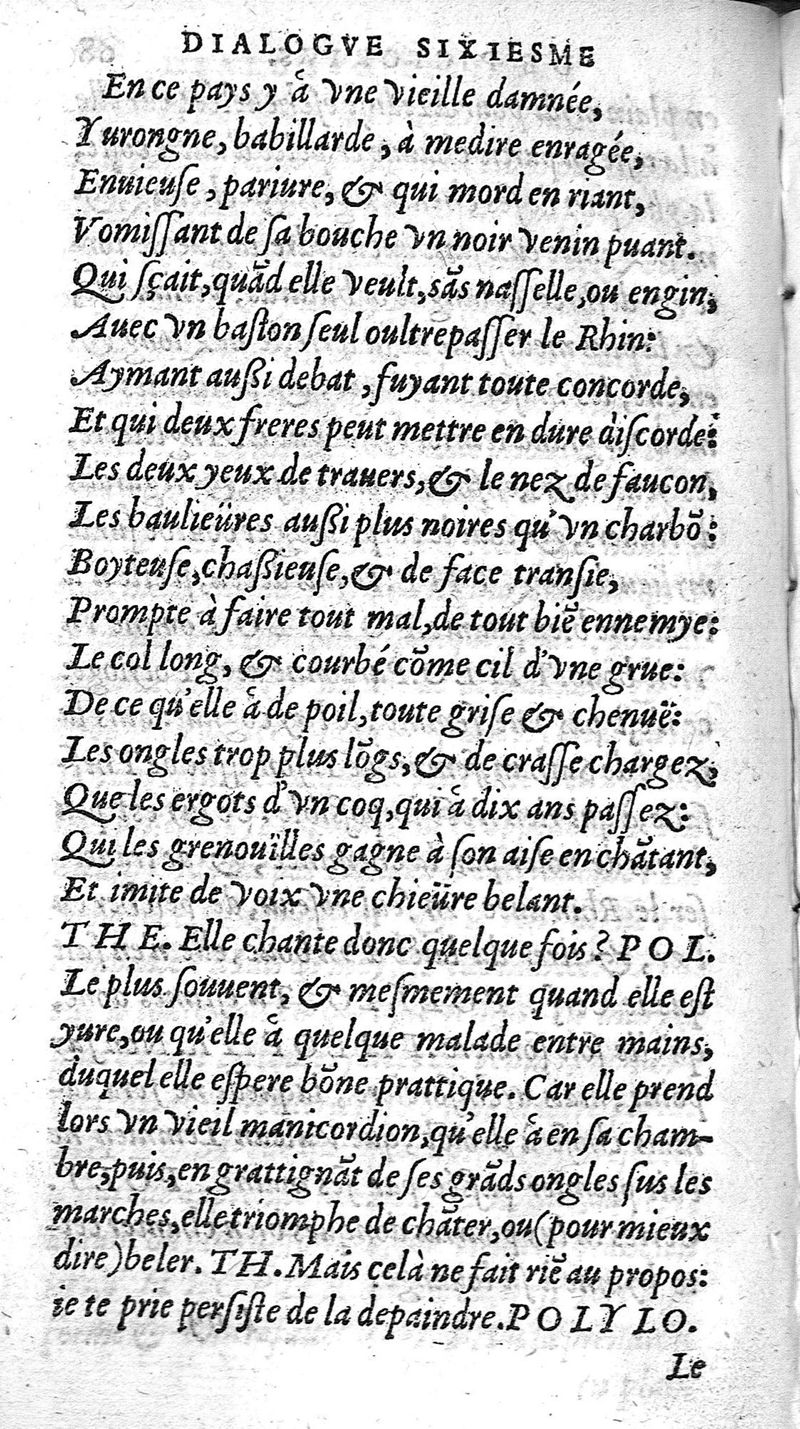 DIALOGVE SIXIESME
En ce pays y à vne vieille damnée,
Yurongne, babillarde, à medire enragée,
Enuieuse, pariure, & qui mord en riant,
Vomissant de sa bouche vn noir venin puant.
Qui sçait, quãd elle veult, sãs nasselle, ou engin,
Auec vn baston seul oultrepasser le Rhin:
Aymant aussi debat, fuyant toute concorde,
Et qui deux freres peut mettre en dure discorde:
Les deux yeux de trauers, & le nez de faucon,
Les baulieüres aussi plus noires qu'vn charbõ:
Boyteuse, chassieuse, & de face transie,
Prompte à faire tout mal, de tout biẽ ennemye:
Le col long, & courbé cõme cil d'vne grue:
De ce qu'elle à de poil, toute grise & chenuë:
Les ongles trop plus lõgs, & de crasse chargez,
Que les ergots d'vn coq, qui à dix ans passez:
Qui les grenouïlles gagne à son aise en chãtant,
Et imite de voix vne chieüre belant.
THE. Elle chante donc quelque fois? POL.
Le plus souuent, & mesmement quand elle est
yure, ou qu'elle à quelque malade entre mains,
duquel elle espere bõne prattique. Car elle prend
lors vn vieil manicordion, qu'elle à en sa cham-
bre, puis, en grattignãt de ses grãds ongles sus les
marches, elle triomphe de chãter, ou (pour mieux
dire) beler. TH. Mais celà ne fait riẽ au propos:
ie te prie persiste de la depaindre. POLYLO.
Le